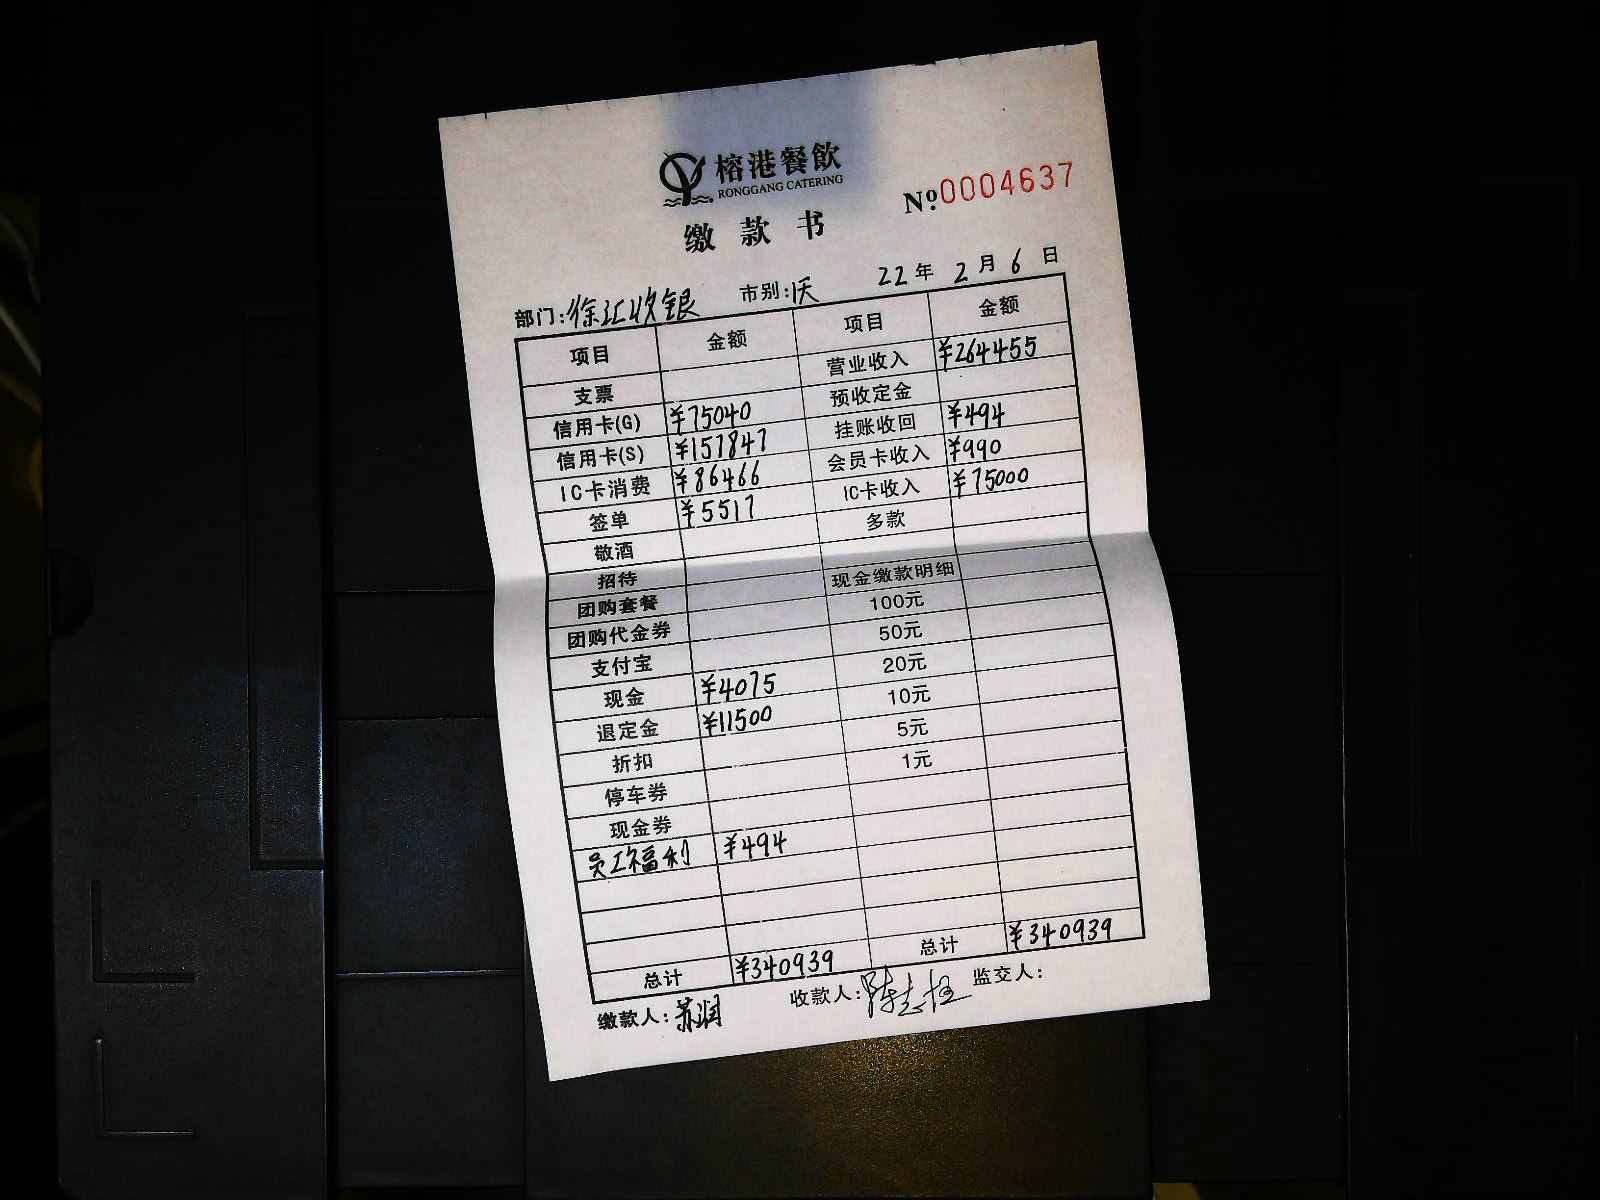 榕港餐飲
RONGGANG CATERING
№0004637
缴款书
部门:徐汇收银 市别: 22年2月6日
项目 金额 项目 金额
支票 营业收入 ¥264455
信用卡(G) ¥75040 预收定金
信用卡(S) ¥157847 挂账收回 ¥494
IC卡消费 ¥86466 会员卡收入 ¥990
签单 ¥5517 IC卡收入 ¥75000
敬酒 多款
招待
团购套餐 现金缴款明细
团购代金券 100元
支付宝 50元
现金 ¥4075 20元
退定金 ¥11500 10元
折扣 5元
停车券 1元
现金券
员工福利 ¥494
总计 ¥340939 总计 ¥340939
缴款人:苏润 收款人: 监交人: